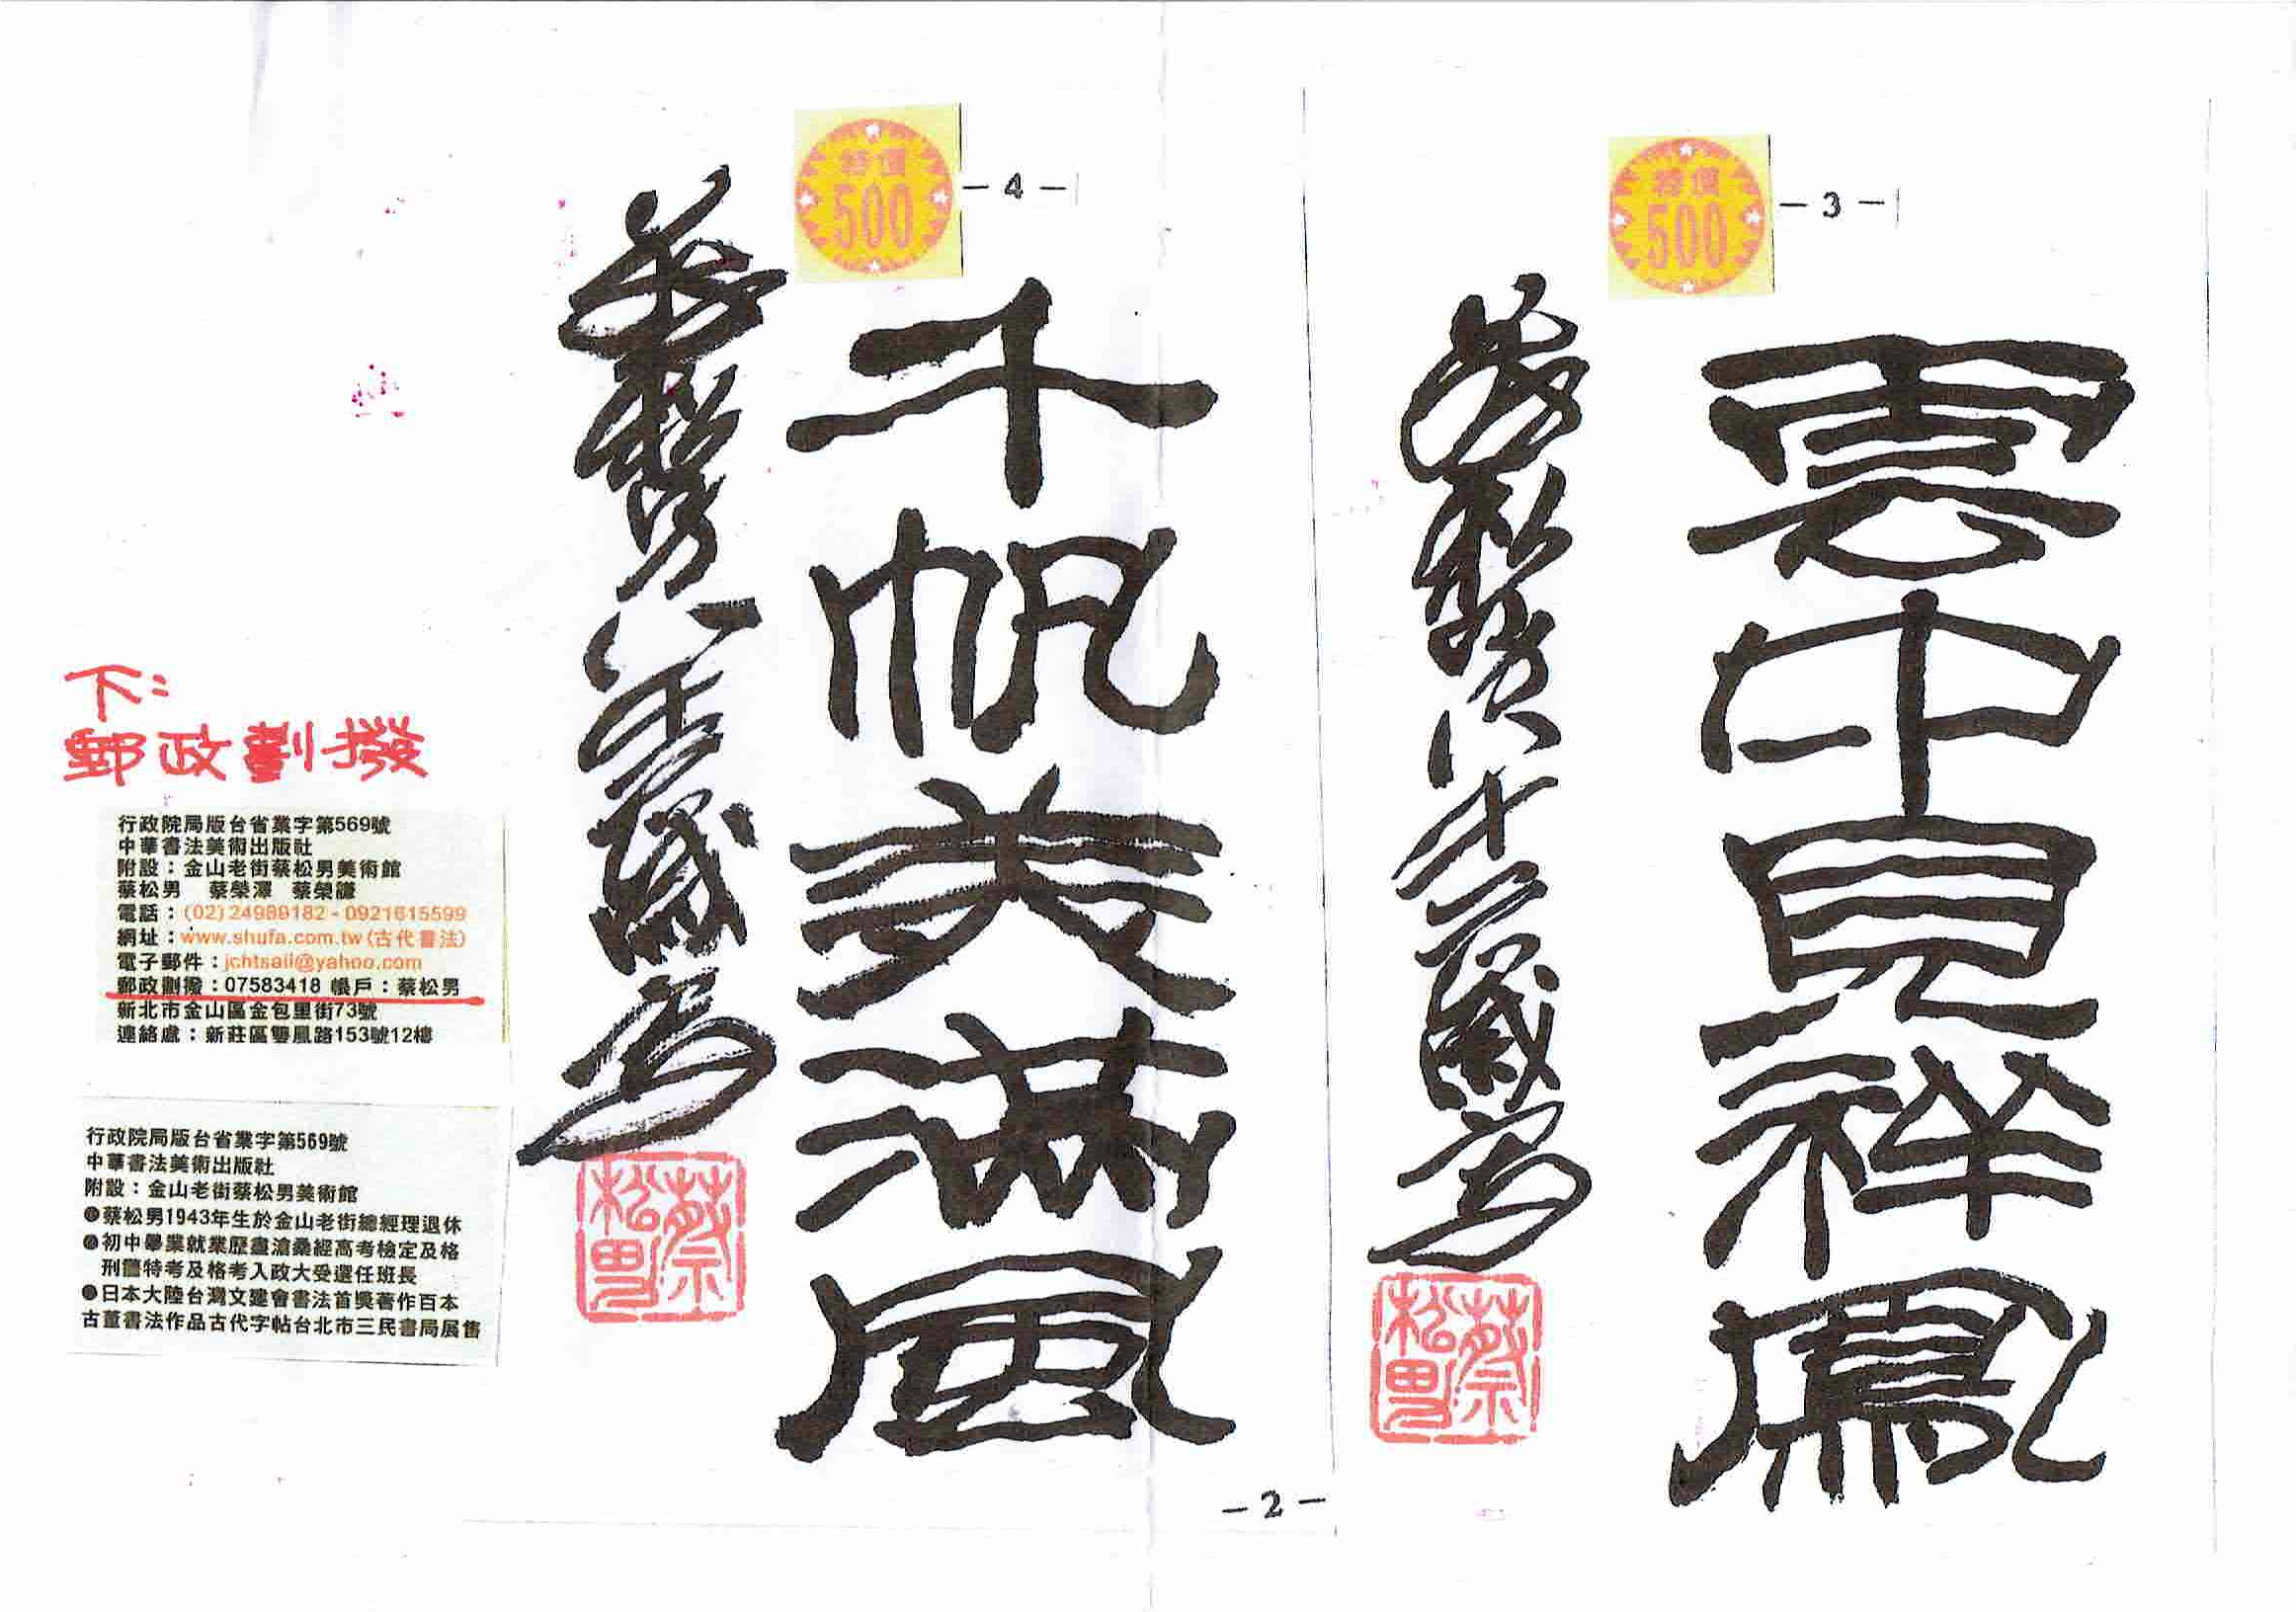 -3-
特價
500
雲中見祥鳳
蔡松男八十二歲
蔡松男
-4-
特價
500
千帆美滿風
蔡松男八
蔡松男
-2-
下:
郵政劃撥
行政院局版台省業字第569號
中華書法美術出版社
附設：金山老街蔡松男美術館
蔡松男 蔡榮澤 蔡榮謙
電話：(02)24989182-0921615599
網址：www.shufa.com.tw(古代書法)
電子郵件：jchtsaii@yahoo.com
郵政劃撥：07583418 帳戶：蔡松男
新北市金山區金包里街73號
連絡處：新莊區雙鳳路153號12樓
行政院局版台省業字第569號
中華書法美術出版社
附設：金山老街蔡松男美術館
●蔡松男1943年生於金山老街總經理退休
●初中畢業就業歷盡滄桑經高考檢定及格
刑警特考及格考入政大受選任班長
●日本大陸台灣文建會書法首獎著作百本
古董書法作品古代字帖台北市三民書局展售